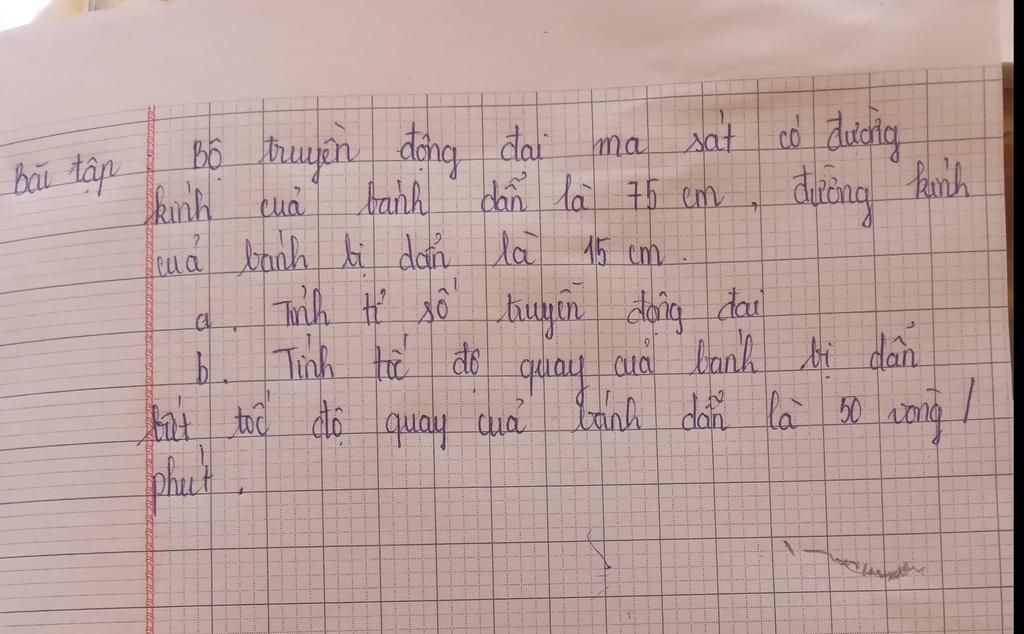 Bài tập Bộ truyền động đai ma sát có đường
kính của bánh dẫn là 75 cm, đường kính
của bánh bị dẫn là 15 cm.
a. Tính tỉ số truyền động đai
b. Tính tốc độ quay của bánh bị dẫn
biết tốc độ quay của bánh dẫn là 50 vòng/
phút.